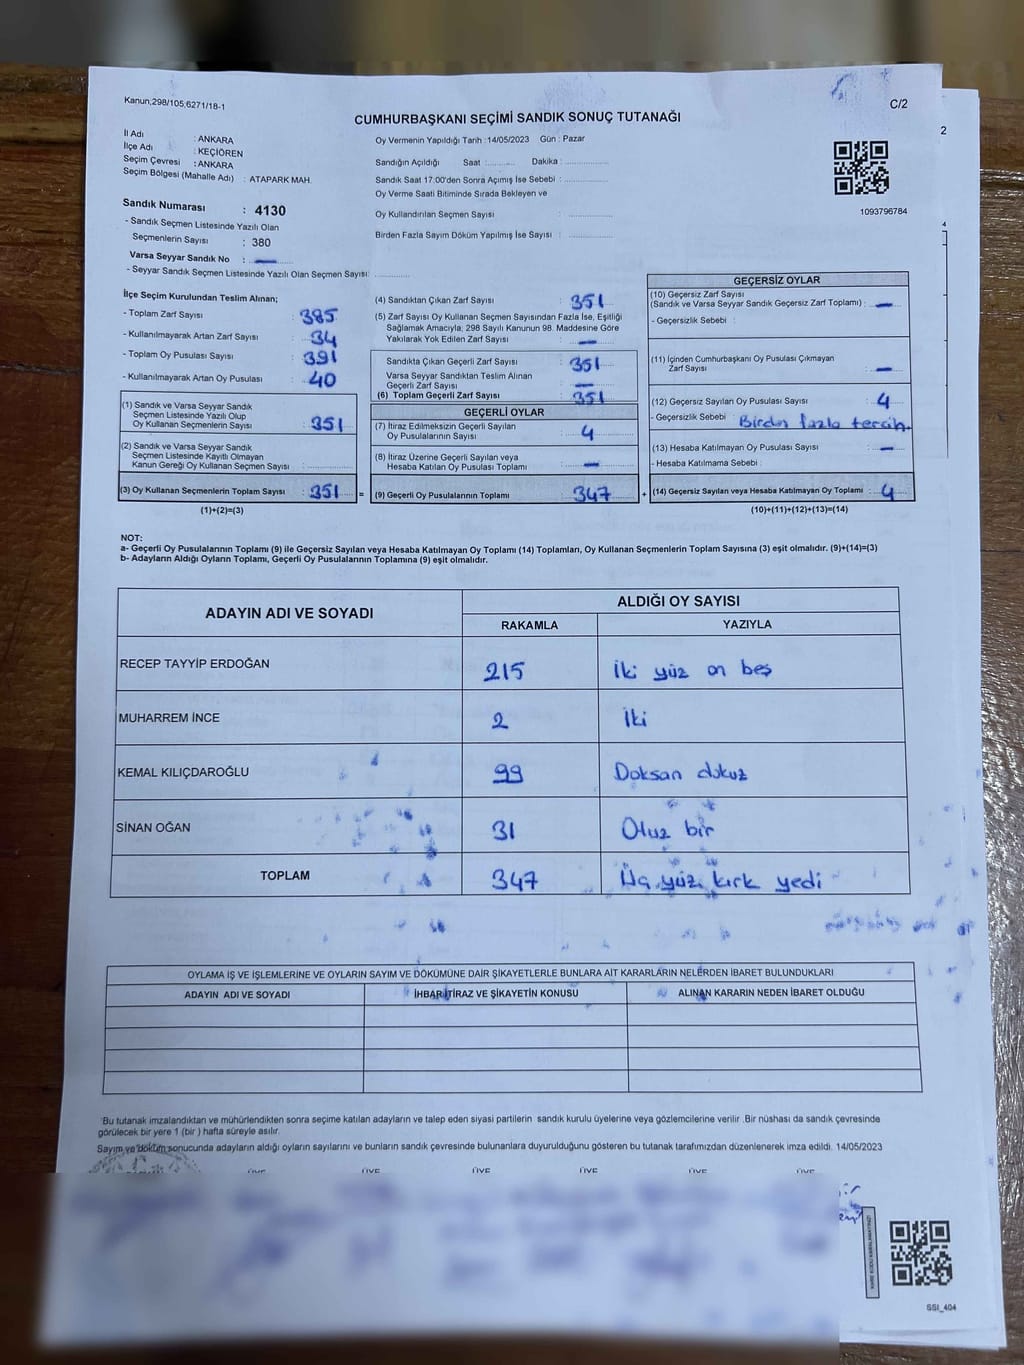 Kanun;298/105;6271/18-1
C/2
CUMHURBAŞKANI SEÇİMİ SANDIK SONUÇ TUTANAĞI
2
İl Adı : ANKARA
İlçe Adı : KEÇİÖREN
Seçim Çevresi : ANKARA
Seçim Bölgesi (Mahalle Adı) : ATAPARK MAH.
Oy Vermenin Yapıldığı Tarih : 14/05/2023 Gün : Pazar
Sandığın Açıldığı Saat :.......... Dakika : ................
Sandık Saat 17:00'den Sonra Açımış İse Sebebi : ................
Oy Verme Saati Bitiminde Sırada Bekleyen ve
Oy Kullandırılan Seçmen Sayısı : ................
Birden Fazla Sayım Döküm Yapılmış İse Sayısı : ................
1093796784
4
Sandık Numarası : 4130
- Sandık Seçmen Listesinde Yazılı Olan
Seçmenlerin Sayısı : 380
Varsa Seyyar Sandık No : —
- Seyyar Sandık Seçmen Listesinde Yazılı Olan Seçmen Sayısı: ............
İlçe Seçim Kurulundan Teslim Alınan;
- Toplam Zarf Sayısı : 385
- Kullanılmayarak Artan Zarf Sayısı : 34
- Toplam Oy Pusulası Sayısı : 391
- Kullanılmayarak Artan Oy Pusulası : 40
(1) Sandık ve Varsa Seyyar Sandık
Seçmen Listesinde Yazılı Olup
Oy Kullanan Seçmenlerin Sayısı : 351
(2) Sandık ve Varsa Seyyar Sandık
Seçmen Listesinde Kayıtlı Olmayan
Kanun Gereği Oy Kullanan Seçmen Sayısı : ............
(3) Oy Kullanan Seçmenlerin Toplam Sayısı : 351 =
(1)+(2)=(3)
(4) Sandıktan Çıkan Zarf Sayısı : 351
(5) Zarf Sayısı Oy Kullanan Seçmen Sayısından Fazla İse, Eşitliği
Sağlamak Amacıyla; 298 Sayılı Kanunun 98. Maddesine Göre
Yakılarak Yok Edilen Zarf Sayısı : —
Sandıkta Çıkan Geçerli Zarf Sayısı : 351
Varsa Seyyar Sandıktan Teslim Alınan
Geçerli Zarf Sayısı : —
(6) Toplam Geçerli Zarf Sayısı : 351
GEÇERLİ OYLAR
(7) İtiraz Edilmeksizin Geçerli Sayılan
Oy Pusulalarının Sayısı : 4
(8) İtiraz Üzerine Geçerli Sayılan veya
Hesaba Katılan Oy Pusulası Toplamı : —
(9) Geçerli Oy Pusulalarının Toplamı : 347 +
GEÇERSİZ OYLAR
(10) Geçersiz Zarf Sayısı
(Sandık ve Varsa Seyyar Sandık Geçersiz Zarf Toplamı) : —
- Geçersizlik Sebebi :
(11) İçinden Cumhurbaşkanı Oy Pusulası Çıkmayan
Zarf Sayısı : —
(12) Geçersiz Sayılan Oy Pusulası Sayısı : 4
- Geçersizlik Sebebi : Birden fazla tercih.
(13) Hesaba Katılmayan Oy Pusulası Sayısı : —
- Hesaba Katılmama Sebebi :
(14) Geçersiz Sayılan veya Hesaba Katılmayan Oy Toplamı : 4
(10)+(11)+(12)+(13)=(14)
NOT:
a- Geçerli Oy Pusulalarının Toplamı (9) ile Geçersiz Sayılan veya Hesaba Katılmayan Oy Toplamı (14) Toplamları, Oy Kullanan Seçmenlerin Toplam Sayısına (3) eşit olmalıdır. (9)+(14)=(3)
b- Adayların Aldığı Oyların Toplamı, Geçerli Oy Pusulalarının Toplamına (9) eşit olmalıdır.
ADAYIN ADI VE SOYADI ALDIĞI OY SAYISI
RAKAMLA YAZIYLA
RECEP TAYYİP ERDOĞAN 215 İki yüz on beş
MUHARREM İNCE 2 İki
KEMAL KILIÇDAROĞLU 99 Doksan dokuz
SİNAN OĞAN 31 Otuz bir
TOPLAM 347 Üç yüz kırk yedi
OYLAMA İŞ VE İŞLEMLERİNE VE OYLARIN SAYIM VE DÖKÜMÜNE DAİR ŞİKAYETLERLE BUNLARA AİT KARARLARIN NELERDEN İBARET BULUNDUKLARI
ADAYIN ADI VE SOYADI İHBAR İTİRAZ VE ŞİKAYETİN KONUSU ALINAN KARARIN NEDEN İBARET OLDUĞU
Bu tutanak imzalandıktan ve mühürlendikten sonra seçime katılan adayların ve talep eden siyasi partilerin sandık kurulu üyelerine veya gözlemcilerine verilir .Bir nüshası da sandık çevresinde
görülecek bir yere 1 (bir ) hafta süreyle asılır.
Sayım ve döküm sonucunda adayların aldığı oyların sayılarını ve bunların sandık çevresinde bulunanlara duyurulduğunu gösteren bu tutanak tarafımızdan düzenlenerek imza edildi. 14/05/2023
ÜYE ÜYE ÜYE ÜYE ÜYE ÜYE
SSI_404